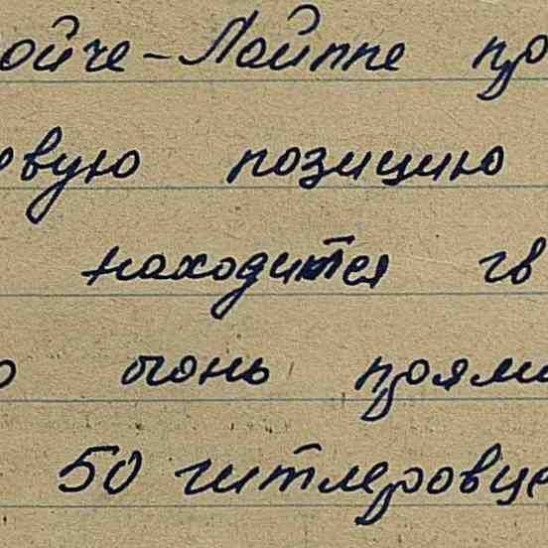 ойче-Лойппе про
овую позицию
находится гв
о огонь прями
50 гитлеровце